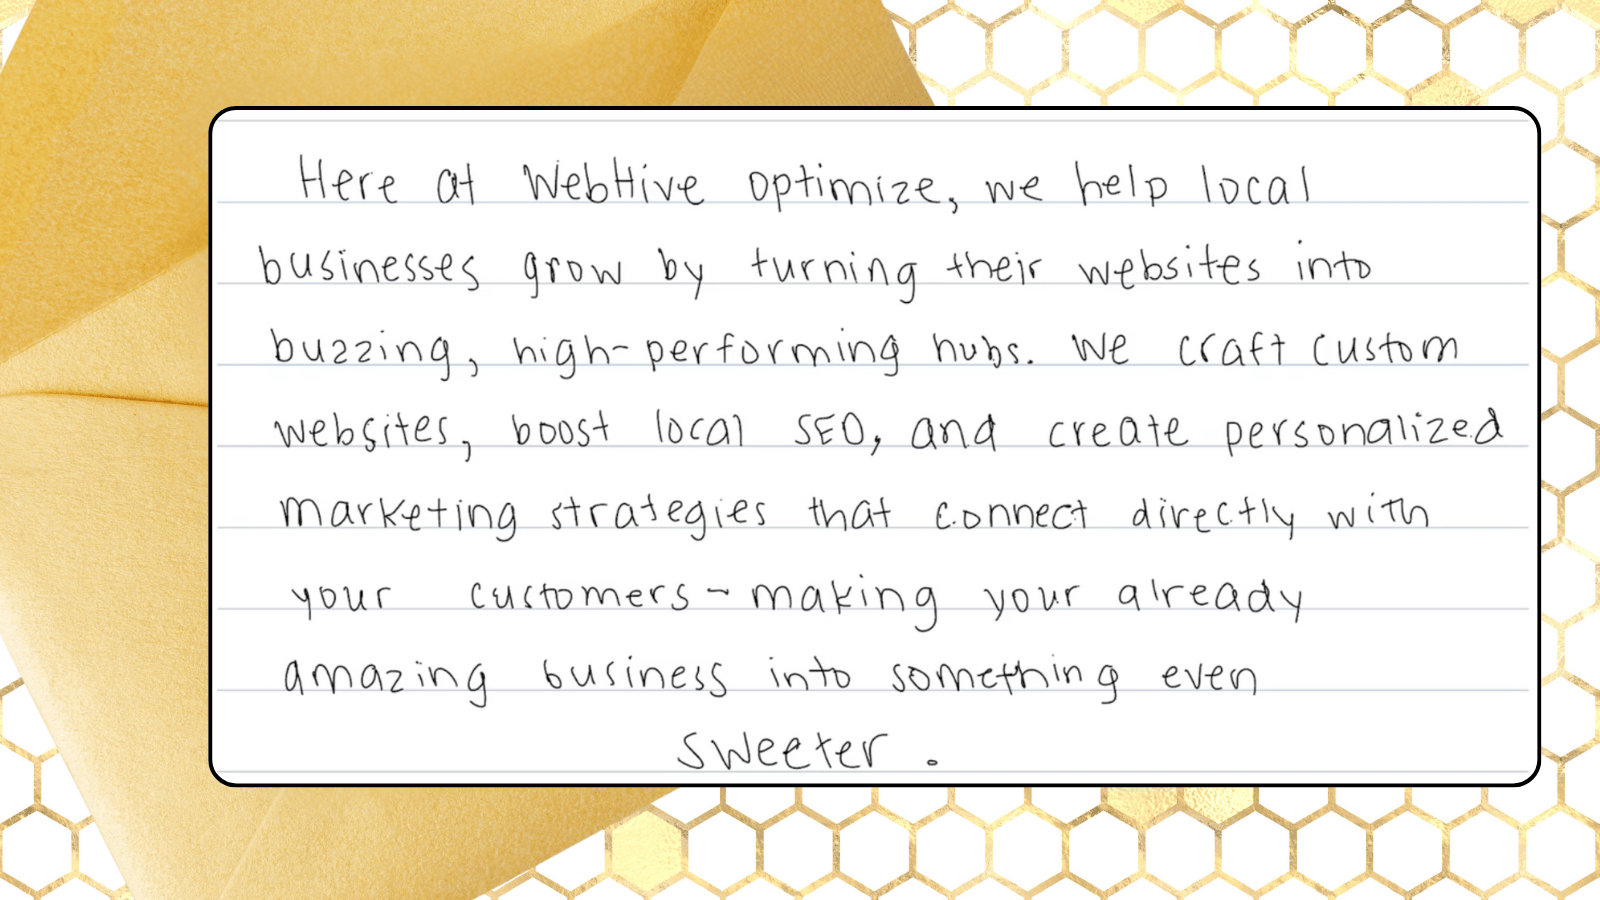 Here at WebHive optimize, we help local
businesses grow by turning their websites into
buzzing, high-performing hubs. We craft custom
websites, boost local SEO, and create personalized
marketing strategies that connect directly with
your customers - making your already
amazing business into something even
sweeter.